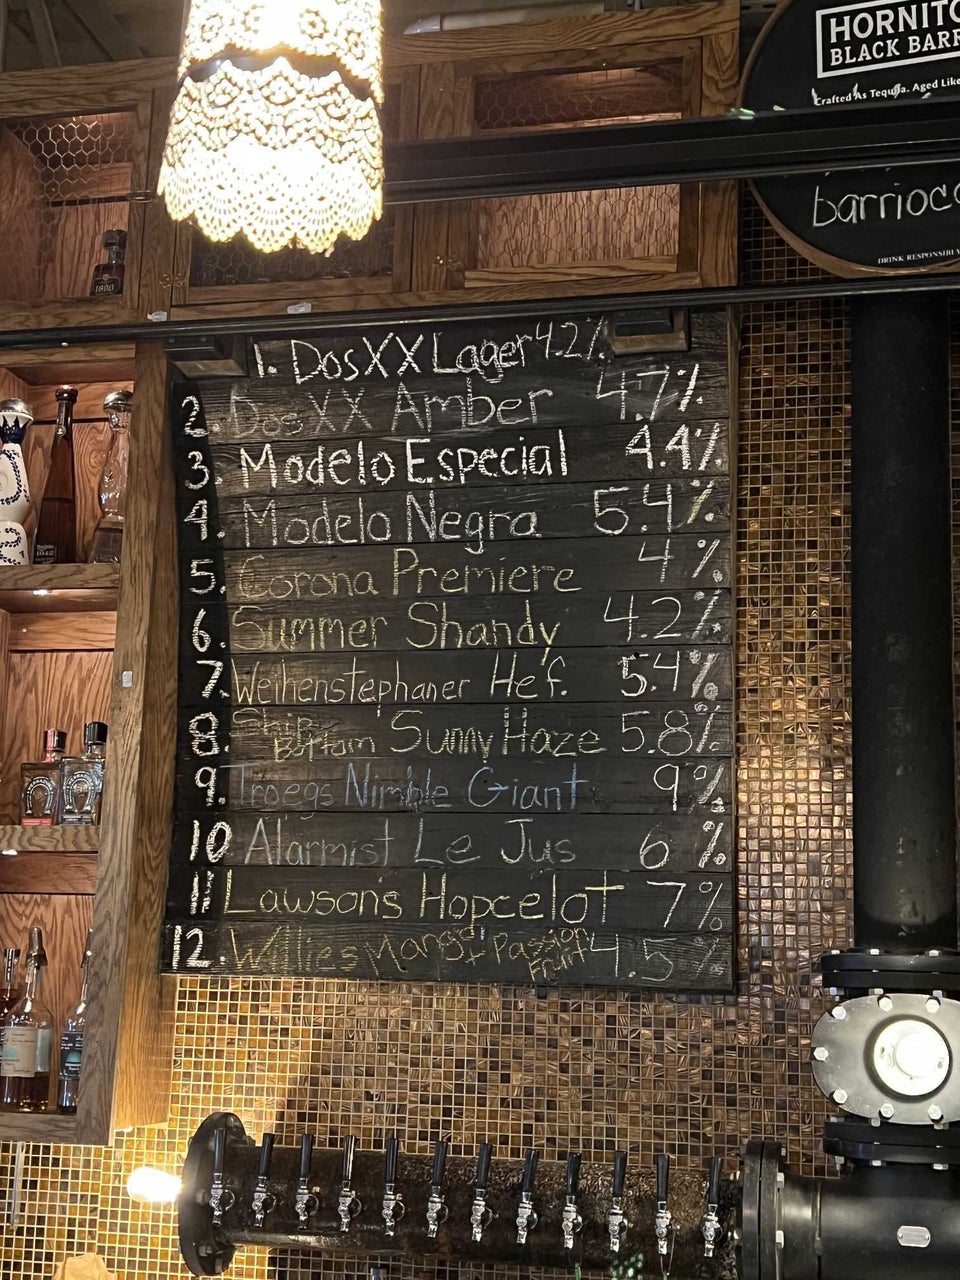 HORNITO
BLACK BARR
Crafted As Tequila. Aged Like
barrioco
DRINK RESPONSIBLY
1800
1. Dos XX Lager 4.2%
2. Dos XX Amber 4.7%
3. Modelo Especial 4.4%
4. Modelo Negra 5.4%
5. Corona Premiere 4%
6. Summer Shandy 4.2%
7. Weihenstephaner Hef. 5.4%
8. Ship Bottom Sunny Haze 5.8%
9. Troegs Nimble Giant 9%
10 Alarmist Le Jus 6%
11 Lawsons Hopcelot 7%
12. Willies Mango + Passion Fruit 4.5%
1942